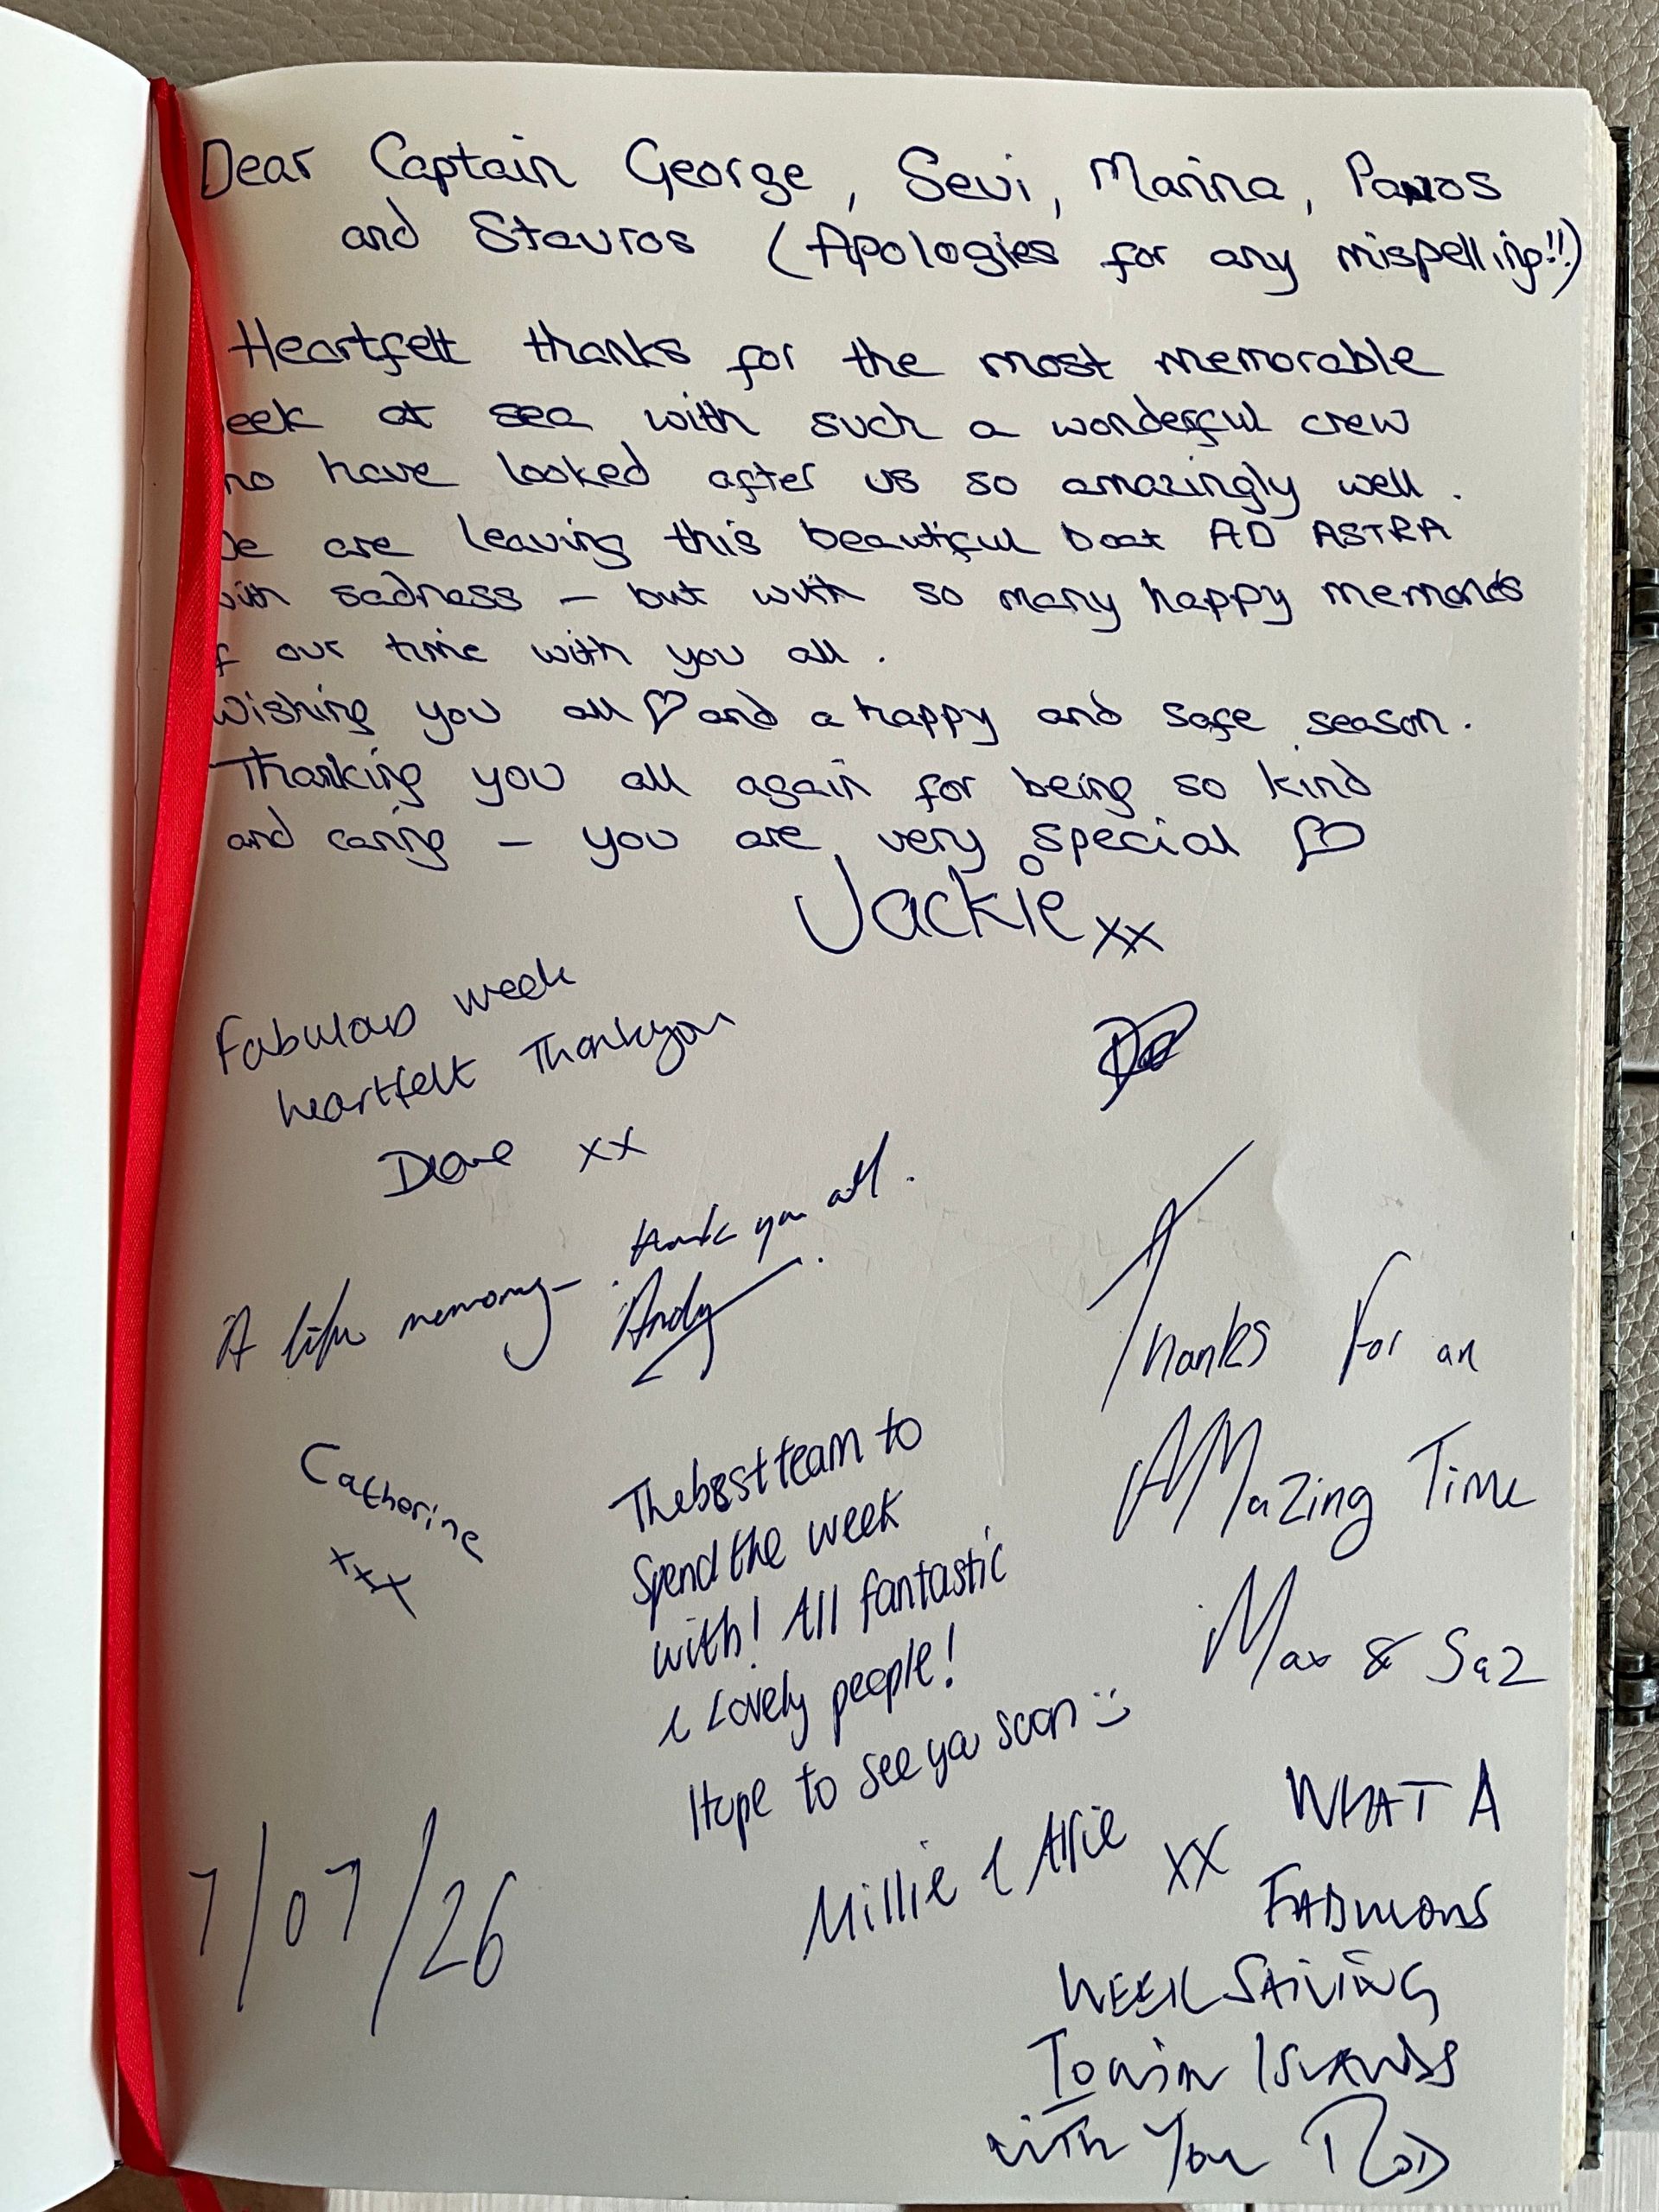 Dear Captain George, Sevi, Marina, Panos
and Stavros (Apologies for any mispelling!!)
Heartfelt thanks for the most memorable
eek at sea with such a wonderful crew
ho have looked after us so amazingly well.
e are leaving this beautiful boat AD ASTRA
with sadness – but with so many happy memories
f our time with you all.
Wishing you all ♡ and a happy and safe season.
Thanking you all again for being so kind
and caring – you are very special ♡
Jackie xx
Fabulous week
heartfelt Thankyou
xx
A life memory – thank you all.
Andy
Thanks for an
AMazing Time
Max & Saz
Catherine
xxx
The best team to
Spend the week
with! All fantastic
& Lovely people!
Hope to see you soon :)
Millie & Alfie xx
WHAT A
FABULOUS
WEEK SAILING
IONIAN ISLANDS
WITH You ROD
7/07/26